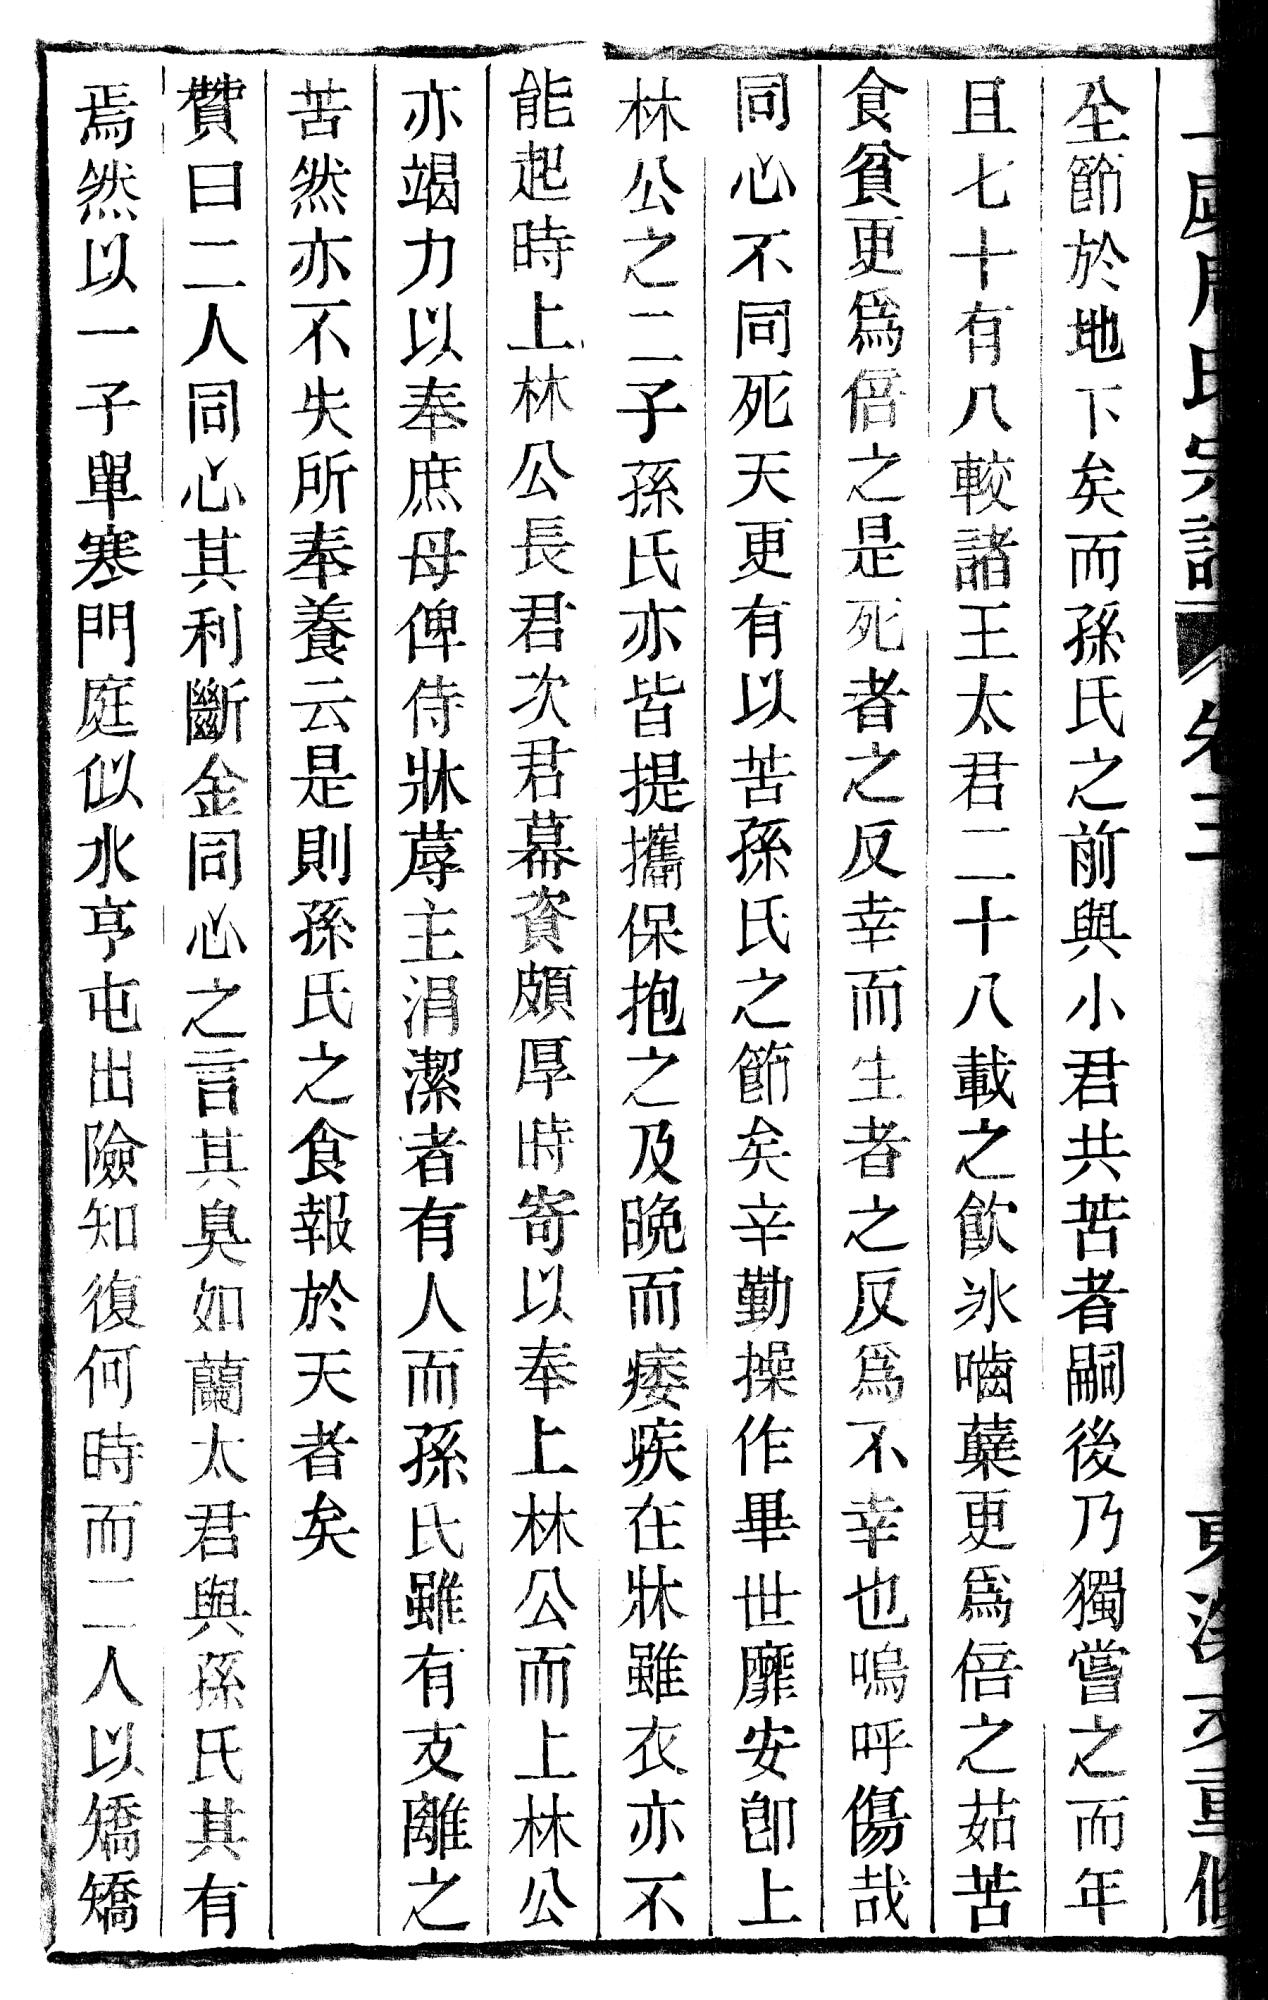 周氏宗譜 卷三 重修
全節於地下矣而孫氏之前與小君共苦者嗣後乃獨嘗之而年
且七十有八較諸王太君二十八載之飮氷嚙蘗更爲倍之茹苦
食貧更爲倍之是死者之反幸而生者之反爲不幸也嗚呼傷哉
同心不同死天更有以苦孫氏之節矣辛勤操作畢世靡安卽上
林公之二子孫氏亦皆提攜保抱之及晚而痿疾在牀雖衣亦不
能起時上林公長君次君幕資頗厚時寄以奉上林公而上林公
亦竭力以奉庶母俾侍牀蓐主涓潔者有人而孫氏雖有支離之
苦然亦不失所奉養云是則孫氏之食報於天者矣
贊曰二人同心其利斷金同心之言其臭如蘭太君與孫氏其有
焉然以一子單寒門庭似水亨屯出險知復何時而二人以矯矯